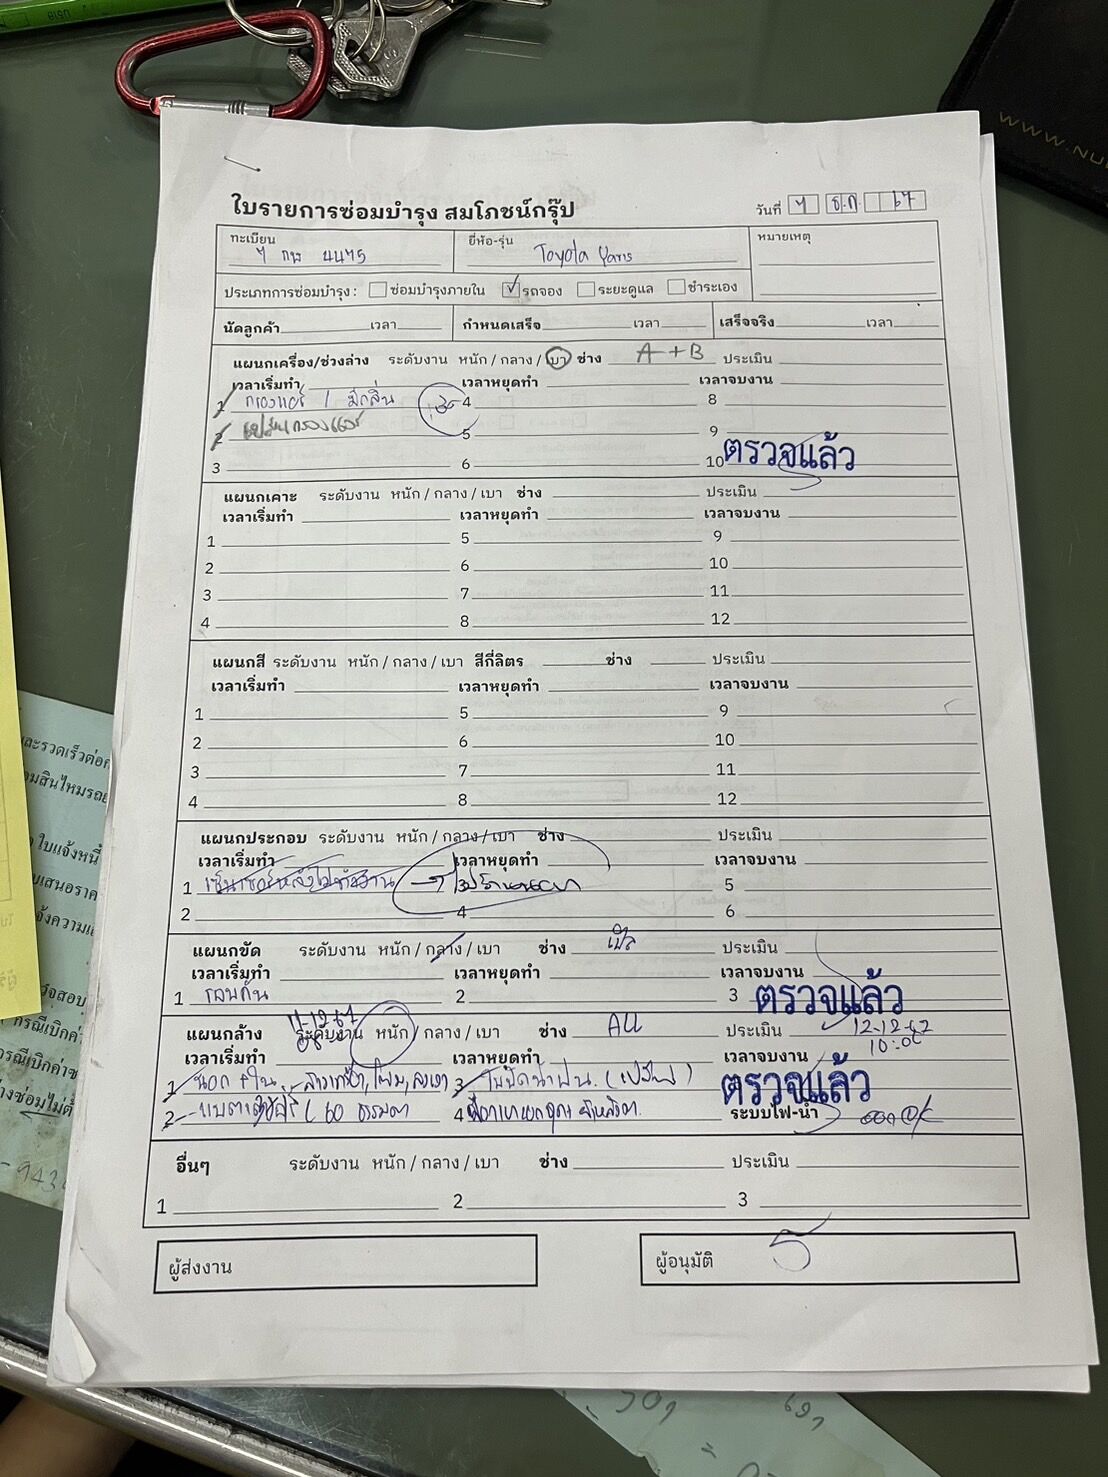 ใบรายการซ่อมบำรุง สมโภชน์กรุ๊ป
วันที่ 7 ธ.ค. 67
ทะเบียน 7 กพ 4475 ยี่ห้อ-รุ่น Toyota Yaris หมายเหตุ
ประเภทการซ่อมบำรุง : ซ่อมบำรุงภายใน ✓ รถจอง ระยะดูแล ชำระเอง
นัดลูกค้า เวลา กำหนดเสร็จ เวลา เสร็จจริง เวลา
แผนกเครื่อง/ช่วงล่าง ระดับงาน หนัก / กลาง / เบา ช่าง A + B ประเมิน
เวลาเริ่มทำ เวลาหยุดทำ เวลาจบงาน
1 กรองแอร์ / มีกลิ่น 4 8
2 เปลี่ยนกรองแอร์ 5 9
3 6 10 ตรวจแล้ว
แผนกเคาะ ระดับงาน หนัก / กลาง / เบา ช่าง ประเมิน
เวลาเริ่มทำ เวลาหยุดทำ เวลาจบงาน
1 5 9
2 6 10
3 7 11
4 8 12
แผนกสี ระดับงาน หนัก / กลาง / เบา สีกี่ลิตร ช่าง ประเมิน
เวลาเริ่มทำ เวลาหยุดทำ เวลาจบงาน
1 5 9
2 6 10
3 7 11
4 8 12
แผนกประกอบ ระดับงาน หนัก / กลาง / เบา ช่าง ประเมิน
เวลาเริ่มทำ เวลาหยุดทำ เวลาจบงาน
1 เซ็นเซอร์หลังไม่ทำงาน 3 5
2 4 6
แผนกขัด ระดับงาน หนัก / กลาง / เบา ช่าง ประเมิน
เวลาเริ่มทำ เวลาหยุดทำ เวลาจบงาน
1 2 3 ตรวจแล้ว
11-12-67
แผนกล้าง ระดับงาน หนัก / กลาง / เบา ช่าง ALL ประเมิน 12-12-67
เวลาเริ่มทำ เวลาหยุดทำ เวลาจบงาน 10:00
1 นอก + ใน 3 ใบปัดน้ำฝน ตรวจแล้ว
2 แบตเตอรี่ 60 ธรรมดา 4 ระบบไฟ-น้ำ
อื่นๆ ระดับงาน หนัก / กลาง / เบา ช่าง ประเมิน
1 2 3
ผู้ส่งงาน ผู้อนุมัติ